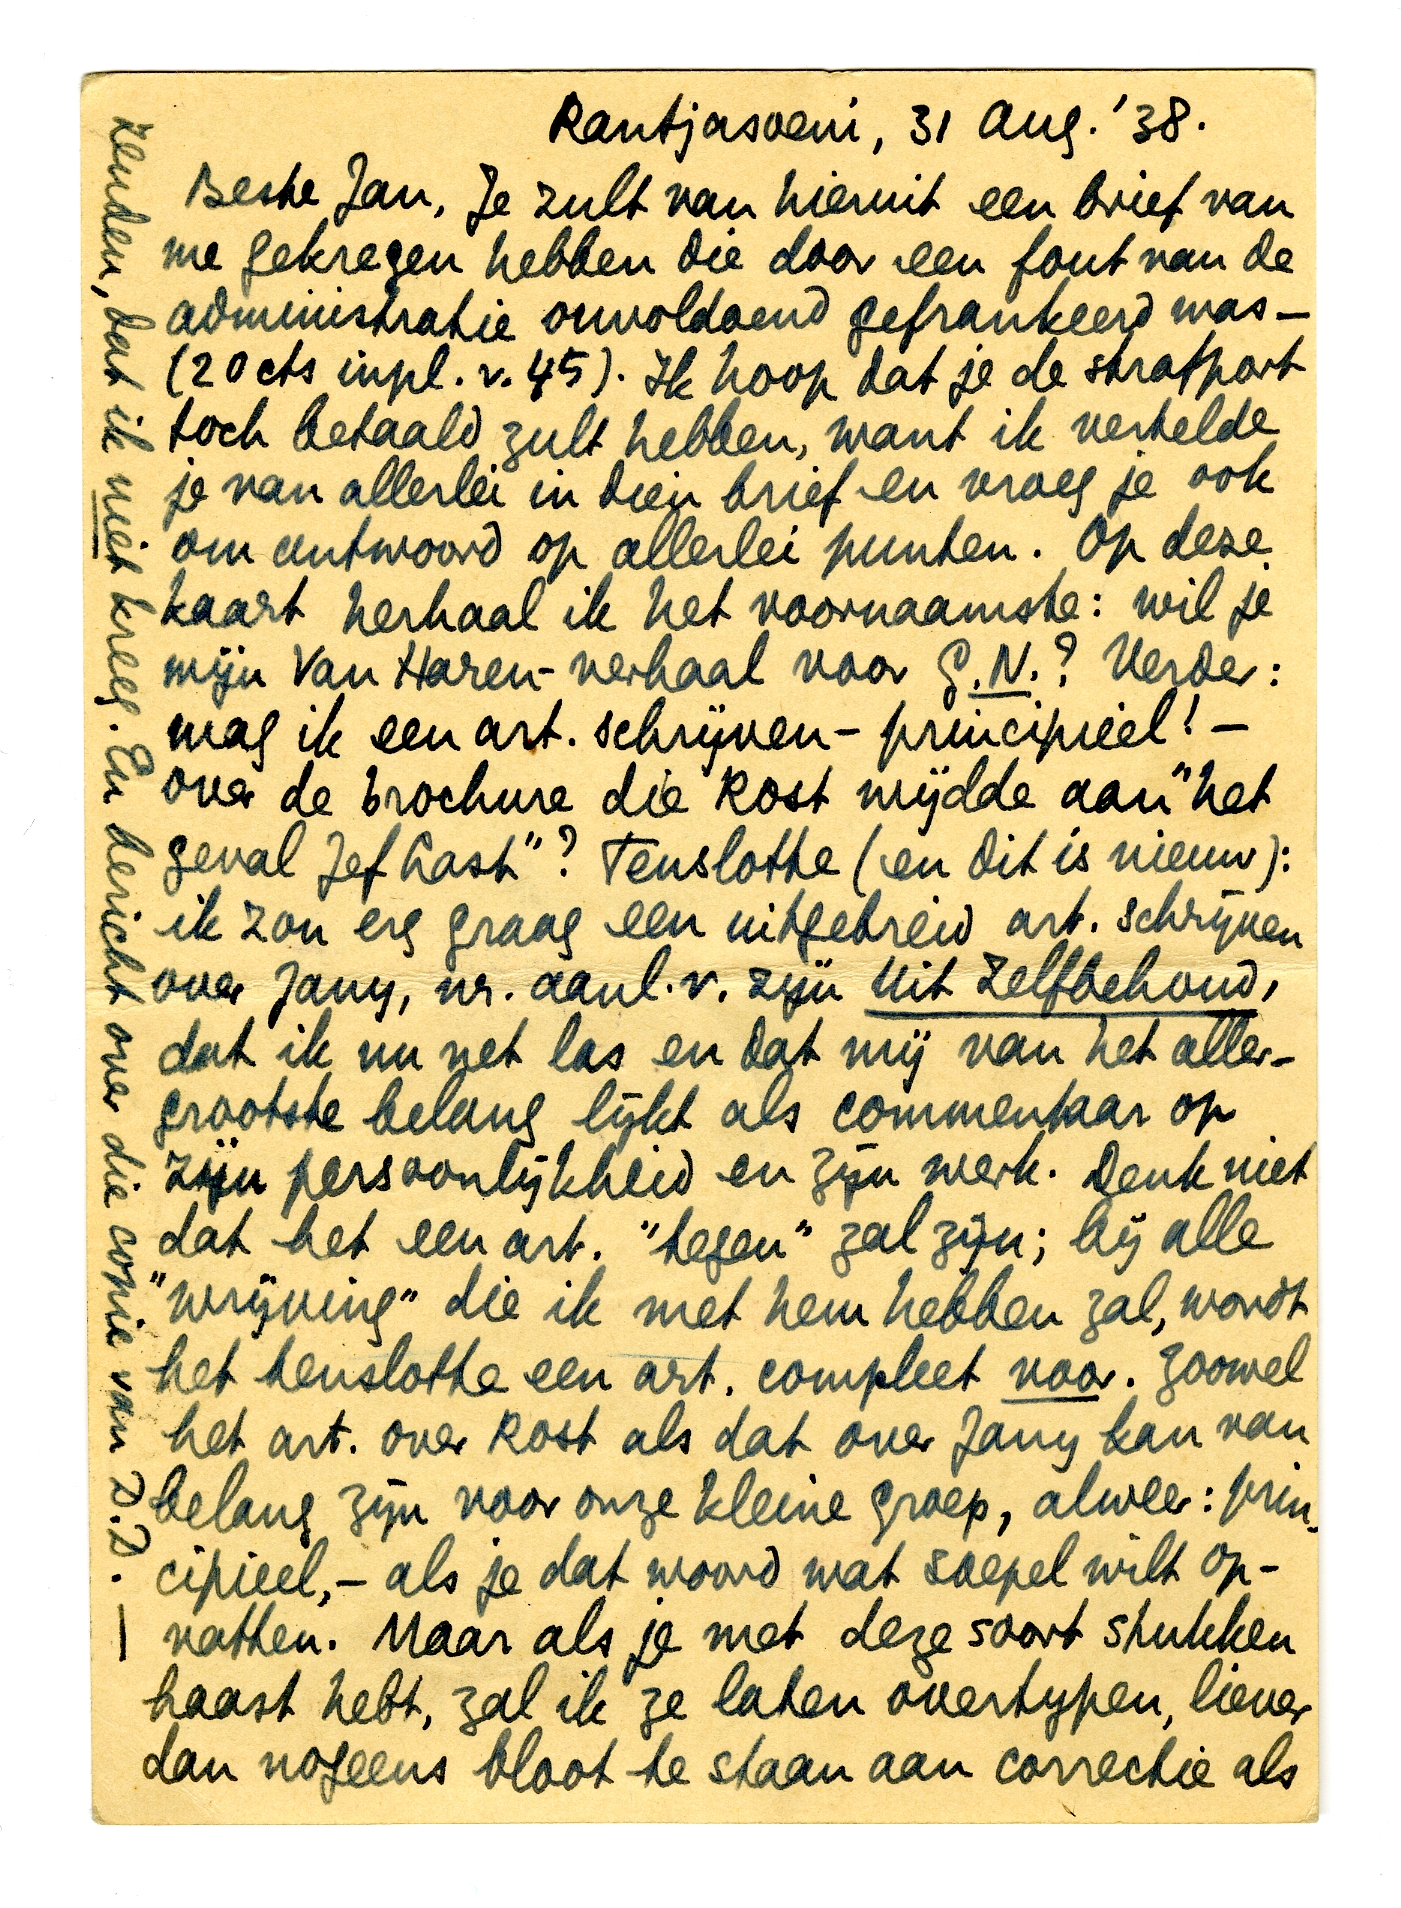 Rantjasoeni, 31 Aug. '38.
Beste Jan, Je zult van hieruit een brief van
me gekregen hebben die door een fout van de
administratie onvoldoend gefrankeerd was —
(20 cts inpl. v. 45). Ik hoop dat je de strafport
toch betaald zult hebben, want ik vertelde
je van allerlei in dien brief en vroeg je ook
om antwoord op allerlei punten. Op deze
kaart herhaal ik het voornaamste: wil je
mijn Van Haren-verhaal voor G.N.? Verder:
mag ik een art. schrijven - principieel! —
over de brochure die Rost wijdde aan "het
geval Jef Last"? Tenslotte (en dit is nieuw):
ik zou erg graag een uitgebreid art. schrijven
over Jany, nr. aanl. v. zijn Uit Zelfbehoud,
dat ik nu net las en dat mij van het aller-
grootste belang lijkt als commentaar op
zijn persoonlijkheid en zijn werk. Denk niet
dat het een art. "tegen" zal zijn; bij alle
"wrijving" die ik met hem hebben zal, wordt
het tenslotte een art. compleet voor. Zoowel
het art. over Rost als dat over Jany kan van
belang zijn voor onze kleine groep, alweer: prin-
cipieel, — als je dat woord wat soepel wilt op-
vatten. Maar als je met deze soort stukken
haast hebt, zal ik ze laten overtypen, liever
dan nogeens bloot te staan aan correctie als
zenden, dat ik niet kreeg. En bericht over die copie van D.D. —